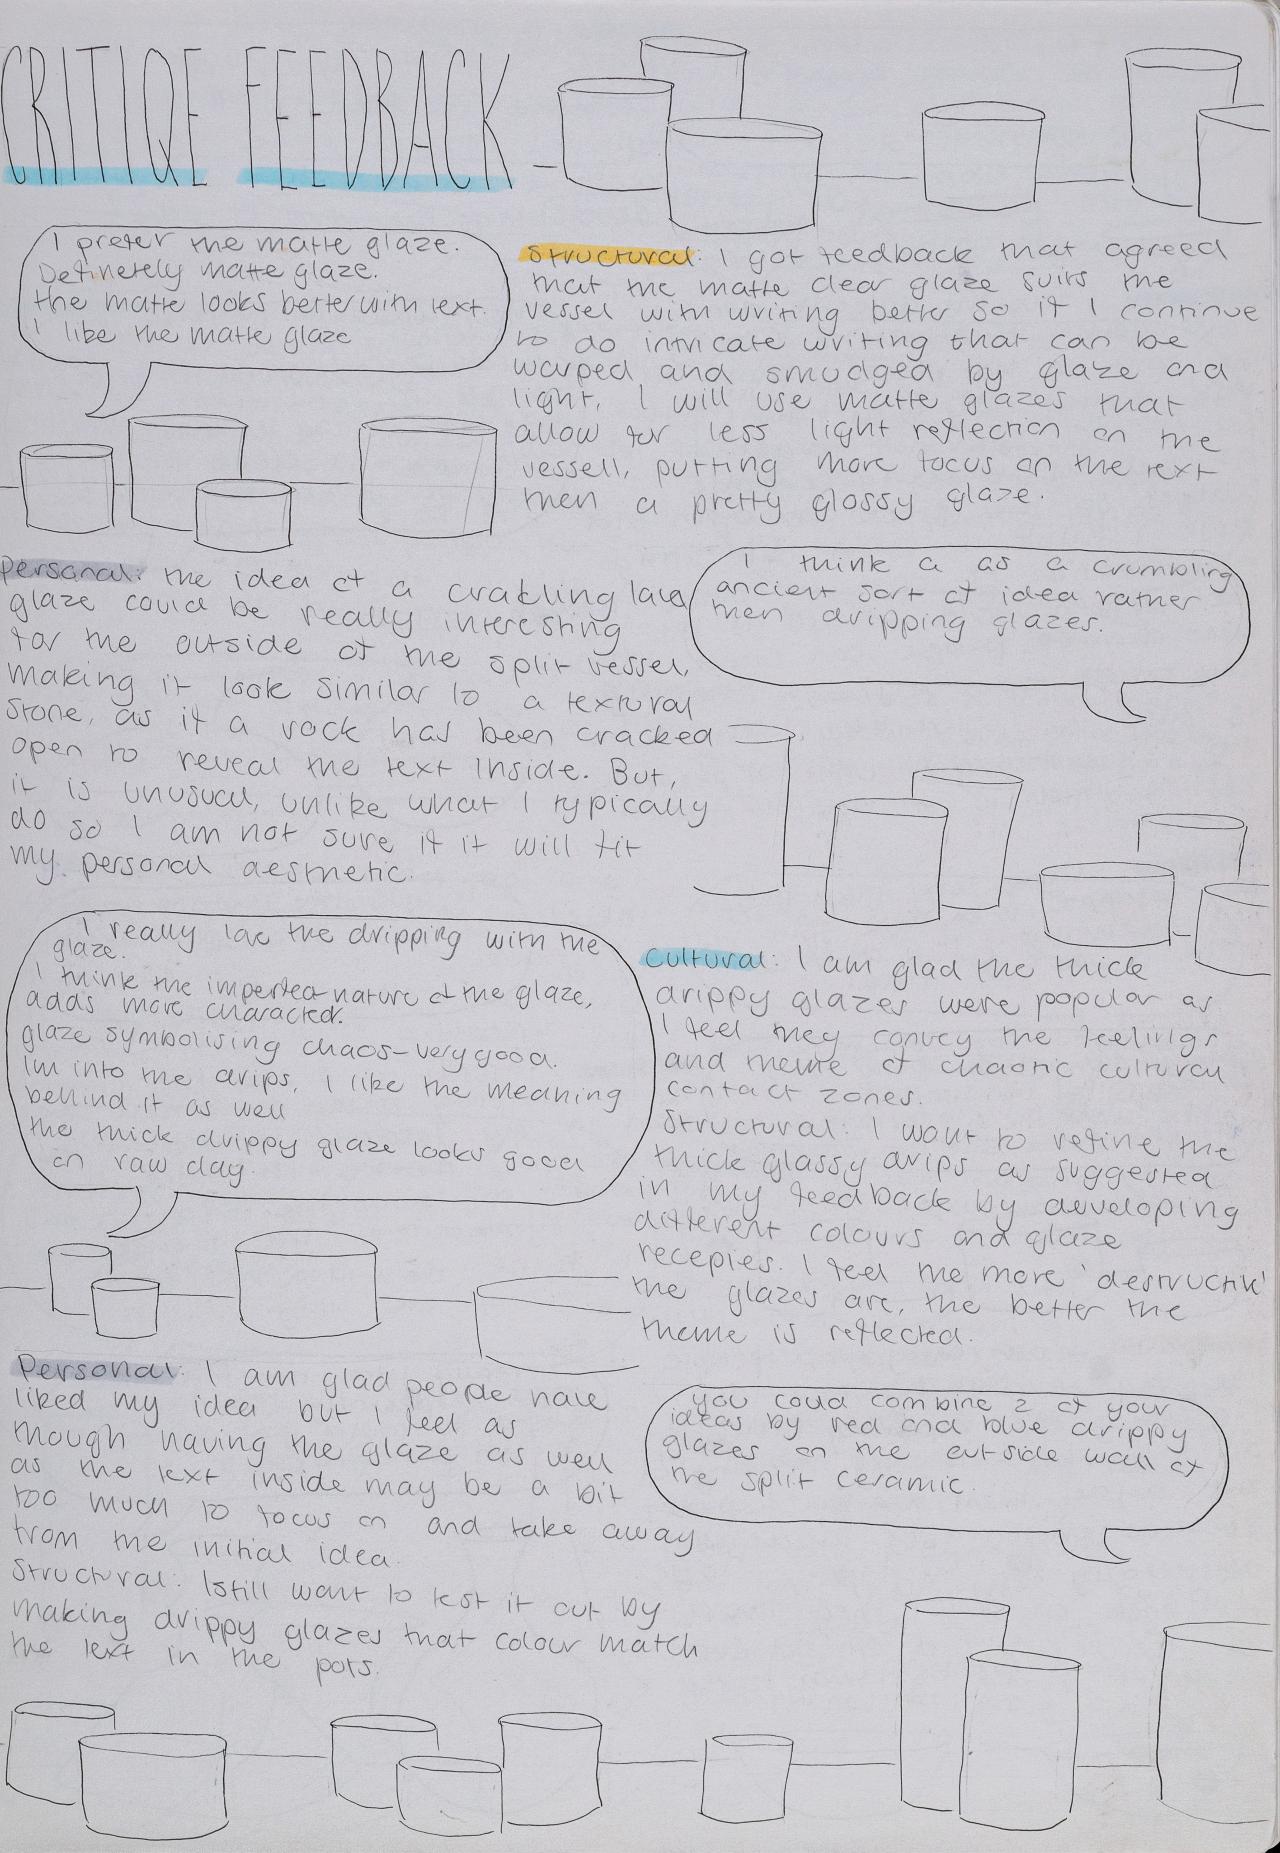 CRITIQE FEEDBACK
I prefer the matte glaze.
Definetely matte glaze.
the matte looks better with text.
I like the matte glaze
Structural: I got feedback that agreed
that the matte clear glaze suits the
vessel with writing better so if I continue
to do intricate writing that can be
warped and smudged by glaze and
light, I will use matte glazes that
allow for less light reflection on the
vessell, putting more focus on the text
then a pretty glossy glaze.
Personal: the idea of a crackling
glaze could be really interesting
for the outside of the split vessel,
making it look similar to a textural
stone, as if a rock has been cracked
open to reveal the text inside. But,
it is unusual, unlike what I typically
do so I am not sure if it will fit
my personal aesthetic.
I think a as a crumbling
ancient sort of idea rather
then dripping glazes.
I really love the dripping with the
glaze.
I think the imperfect nature of the glaze,
adds more character.
glaze symbolising chaos - very good.
Im into the drips, I like the meaning
behind it as well
the thick drippy glaze looks good
on raw clay.
Cultural: I am glad the thick
drippy glazes were popular as
I feel they convey the feelings
and theme of chaotic cultural
contact zones.
Structural: I want to refine the
thick glassy drips as suggested
in my feedback by developing
different colours and glaze
recepies. I feel the more 'destructive'
the glazes are, the better the
theme is reflected.
Personal: I am glad people have
liked my idea but I feel as
though having the glaze as well
as the text inside may be a bit
too much to focus on and take away
from the initial idea.
Structural: I still want to test it out by
making drippy glazes that colour match
the text in the pots.
you could combine 2 of your
ideas by red and blue drippy
glazes on the outside wall of
the split ceramic.